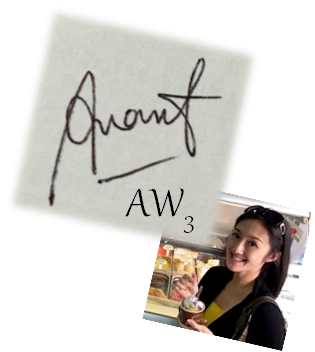 Anant
AW3